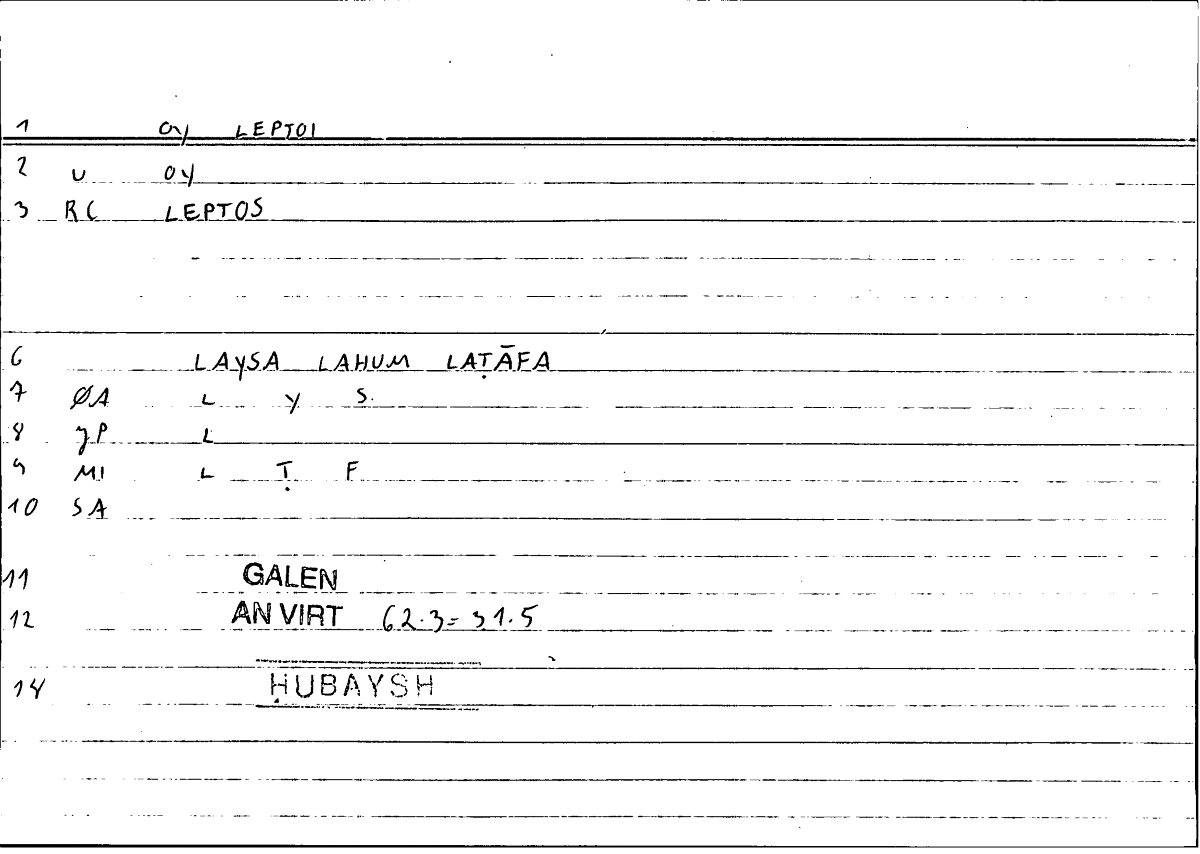 1 oy LEPTOI
2 U oy
3 RC LEPTOS
6 LAYSA LAHUM LAṬĀFA
7 ØA L Y S.
8 JP L
9 MI L Ṭ F
10 SA
11 GALEN
12 AN VIRT 62.3 = 31.5
14 ḤUBAYSH